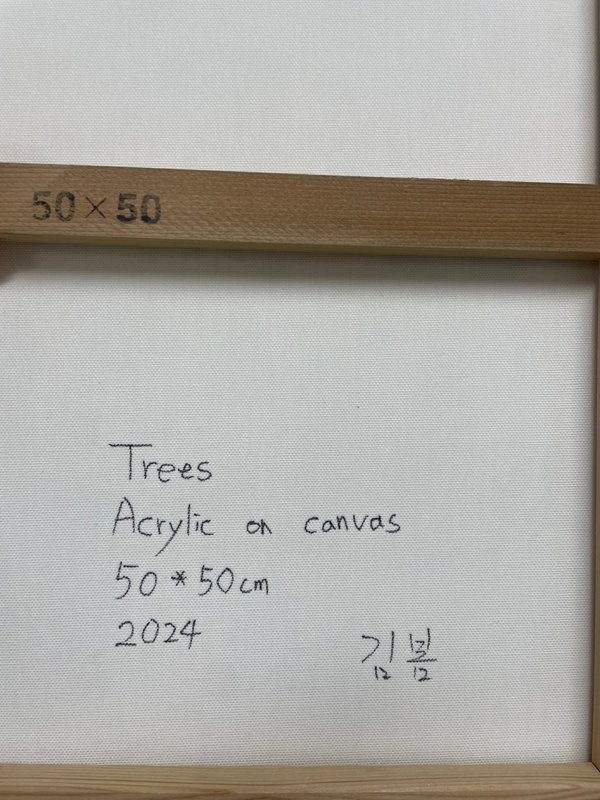 50×50
Trees
Acrylic on canvas
50*50cm
2024
김봄